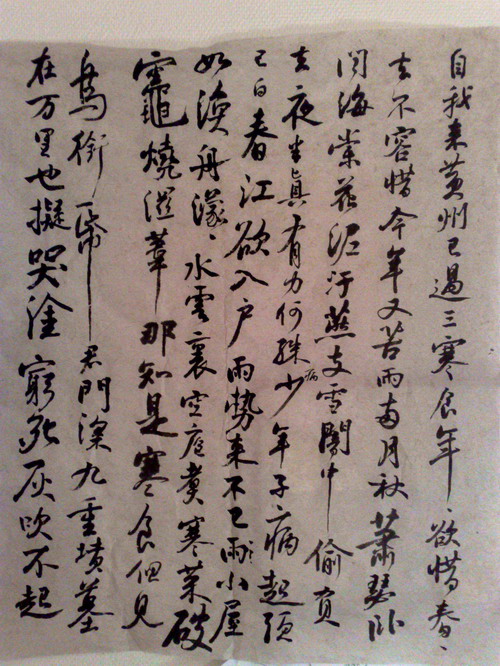 自我来黄州已過三寒食年〻欲惜春〻
去不容惜今年又苦雨兩月秋蕭瑟卧
闻海棠花泥汙燕支雪闇中偷負
去夜半真有力何殊少病年子病起須
已白春江欲入户雨勢来不已雨小屋
如渔舟濛〻水雲裏空庖煮寒菜破
竈燒溼葦那知是寒食但見
烏銜帋君門深九重墳墓
在万里也擬哭塗窮死灰吹不起